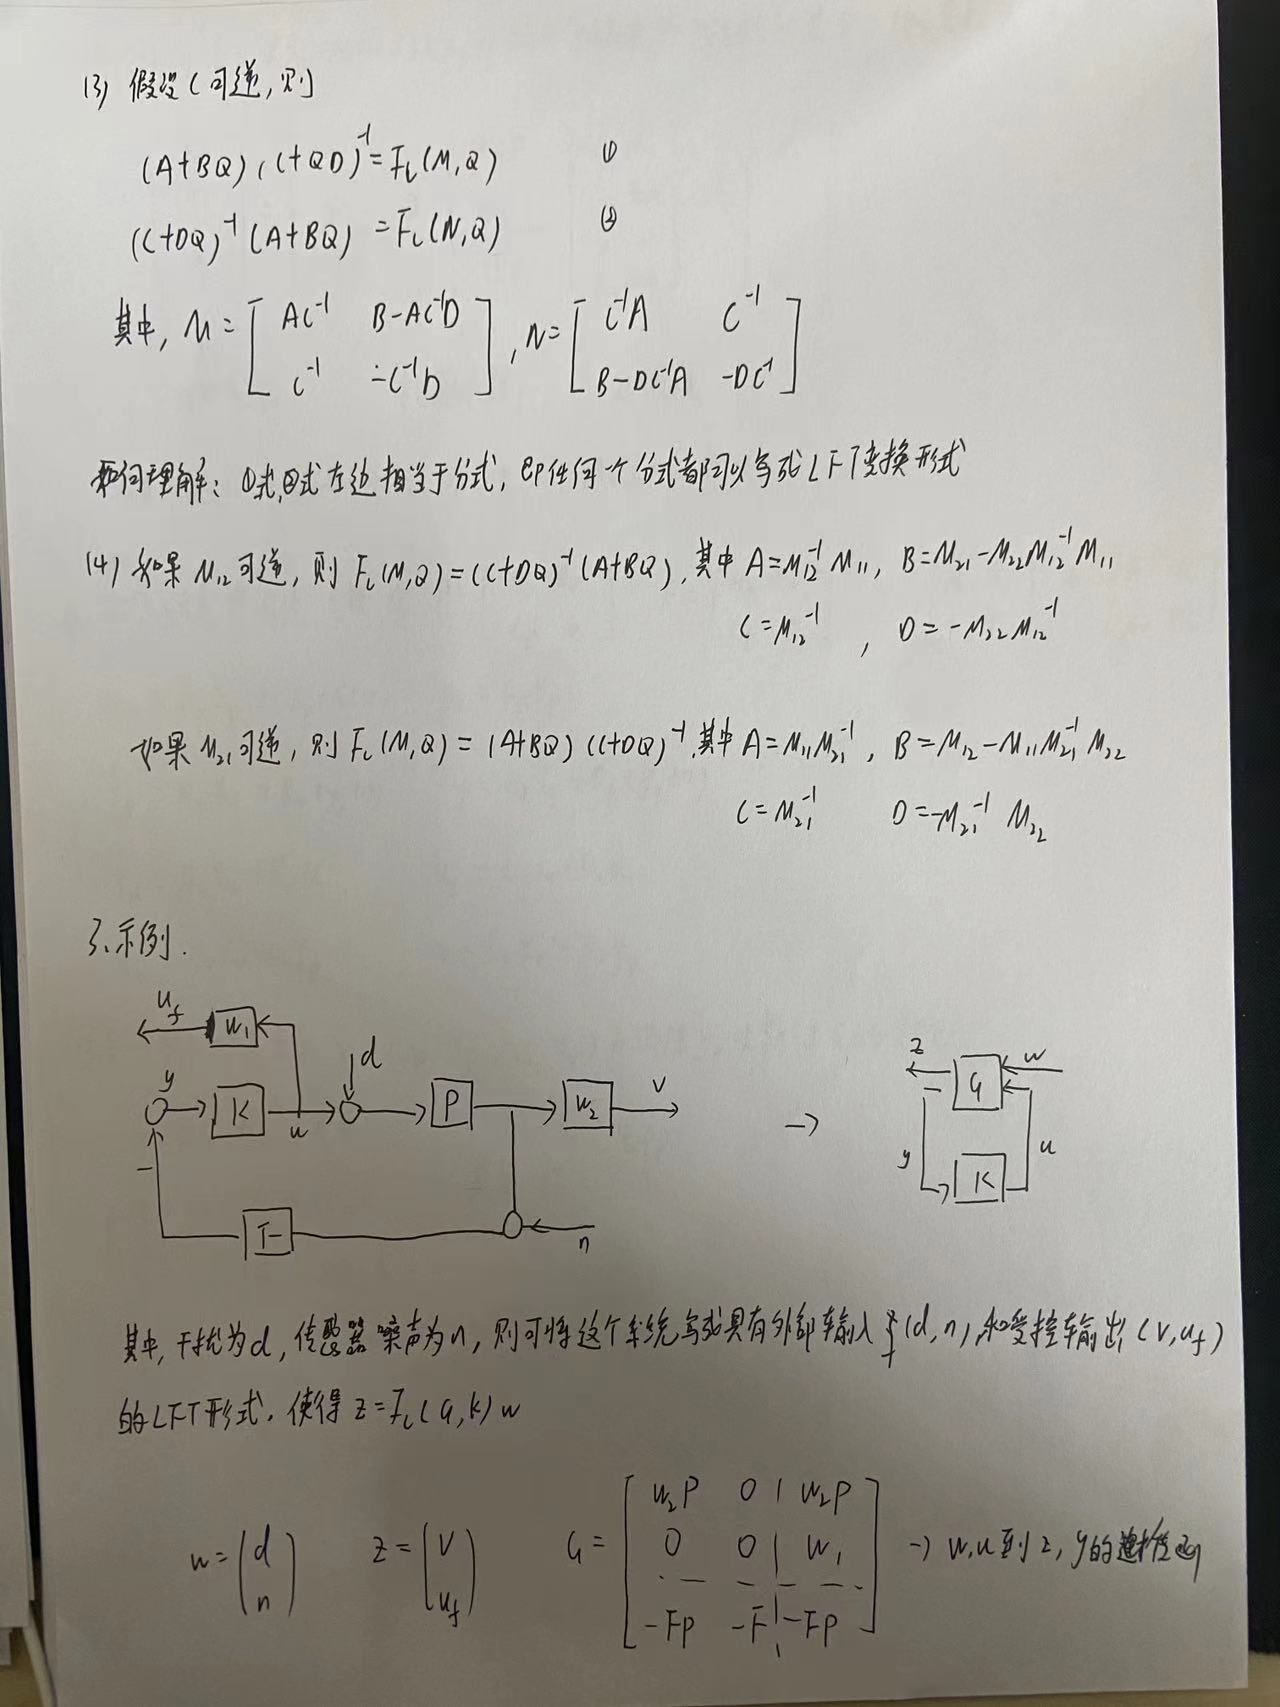 (3) 假设C可逆,则
(A+BQ)(C+QD)⁻¹=F_L(M,Q) ①
(C+DQ)⁻¹(A+BQ) =F_L(N,Q) ②
其中, M= [ AC⁻¹ B-AC⁻¹D ; C⁻¹ -C⁻¹D ] , N= [ C⁻¹A C⁻¹ ; B-DC⁻¹A -DC⁻¹ ]
如何理解: ①式,②式左边相当于分式, 即任何一个分式都可以写成LFT变换形式
(4) 如果M₁₂可逆, 则 F_L(M,Q)=(C+DQ)⁻¹(A+BQ), 其中 A=M₁₂⁻¹M₁₁, B=M₂₁-M₂₂M₁₂⁻¹M₁₁
C=M₁₂⁻¹ , D=-M₂₂M₁₂⁻¹
如果M₂₁可逆, 则 F_L(M,Q)=(A+BQ)(C+DQ)⁻¹,其中 A=M₁₁M₂₁⁻¹, B=M₁₂-M₁₁M₂₁⁻¹M₂₂
C=M₂₁⁻¹ D=-M₂₁⁻¹M₂₂
3、示例.
u_f W₁
y K u d P W₂ v
- F n
→
z G w
y K u
其中, 干扰为d, 传感器噪声为n, 则可将这个系统写成具有外部输入(d,n)和受控输出(v,u_f)
的LFT形式. 使得 z=F_L(G,K)w
w= ( d ; n ) z= ( v ; u_f ) G= [ W₂P 0 | W₂P ; 0 0 | W₁ ; -FP -F | -FP ] → w,u到z,y的